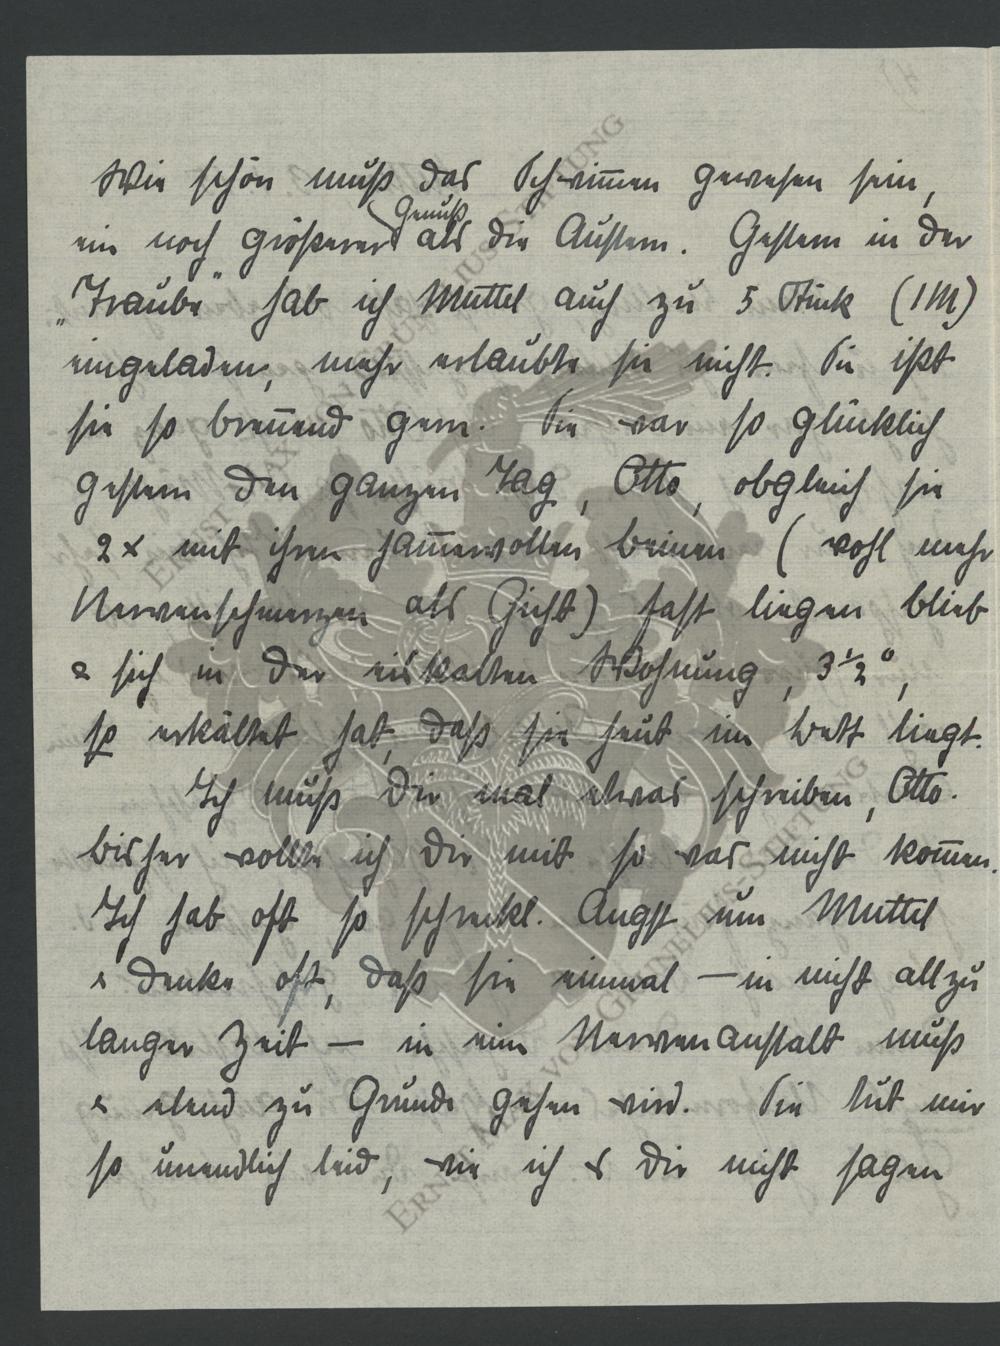 Wie schön muß das Schwim̅en gewesen sein,
ein noch größerer Genuß als die Austern. Gestern in der
„Traube“ hab ich Muttel auch zu 5 Stück (1 M)
eingeladen, mehr erlaubte sie nicht. Sie ißt
sie so bren̅end gern. Sie war so glücklich
gestern den ganzen Tag, Otto, obgleich sie
2 x mit ihren jam̅ervollen Beinen (wohl mehr
Nervenschmerzen als Gicht) fast liegen blieb
& sich in der eiskalten Wohnung, 3½°,
so erkältet hat, daß sie heut im Bett liegt.
Ich muß Dir mal etwas schreiben, Otto.
bisher wollte ich Dir mit so was nicht kom̅en.
Ich hab oft so schreckl. Angst um Muttel
& denke oft, daß sie einmal — in nicht allzu
langer Zeit — in eine Nervenanstalt muß
& elend zu Grunde gehen wird. Sie tut mir
so unendlich leid, wie ich es Dir nicht sagen
ERNST MAX VON GRÜNELIUS-STIFTUNG
ERNST MAX VON GRÜNELIUS-STIFTUNG